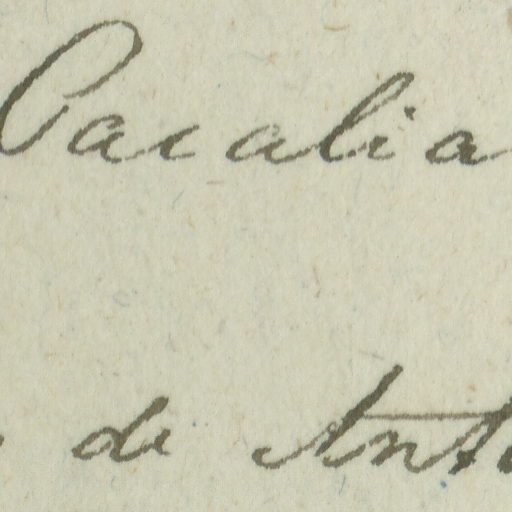 Cacalia
de Ant